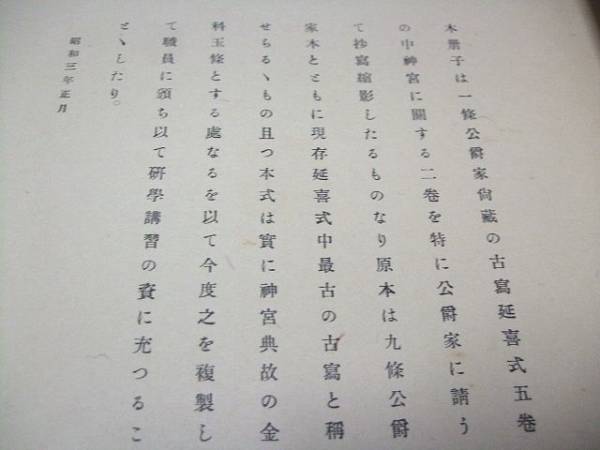 本册子は一條公爵家尙藏の古寫延喜式五卷
の中神宮に關する二卷を特に公爵家に請う
て抄寫縮影したるものなり原本は九條公爵
家本とともに現存延喜式中最古の古寫と稱
せらるゝもの且つ本式は實に神宮典故の金
科玉條とする處なるを以て今度之を複製し
て職員に頒ち以て硏學講習の資に充つるこ
とゝしたり。
昭和三年正月